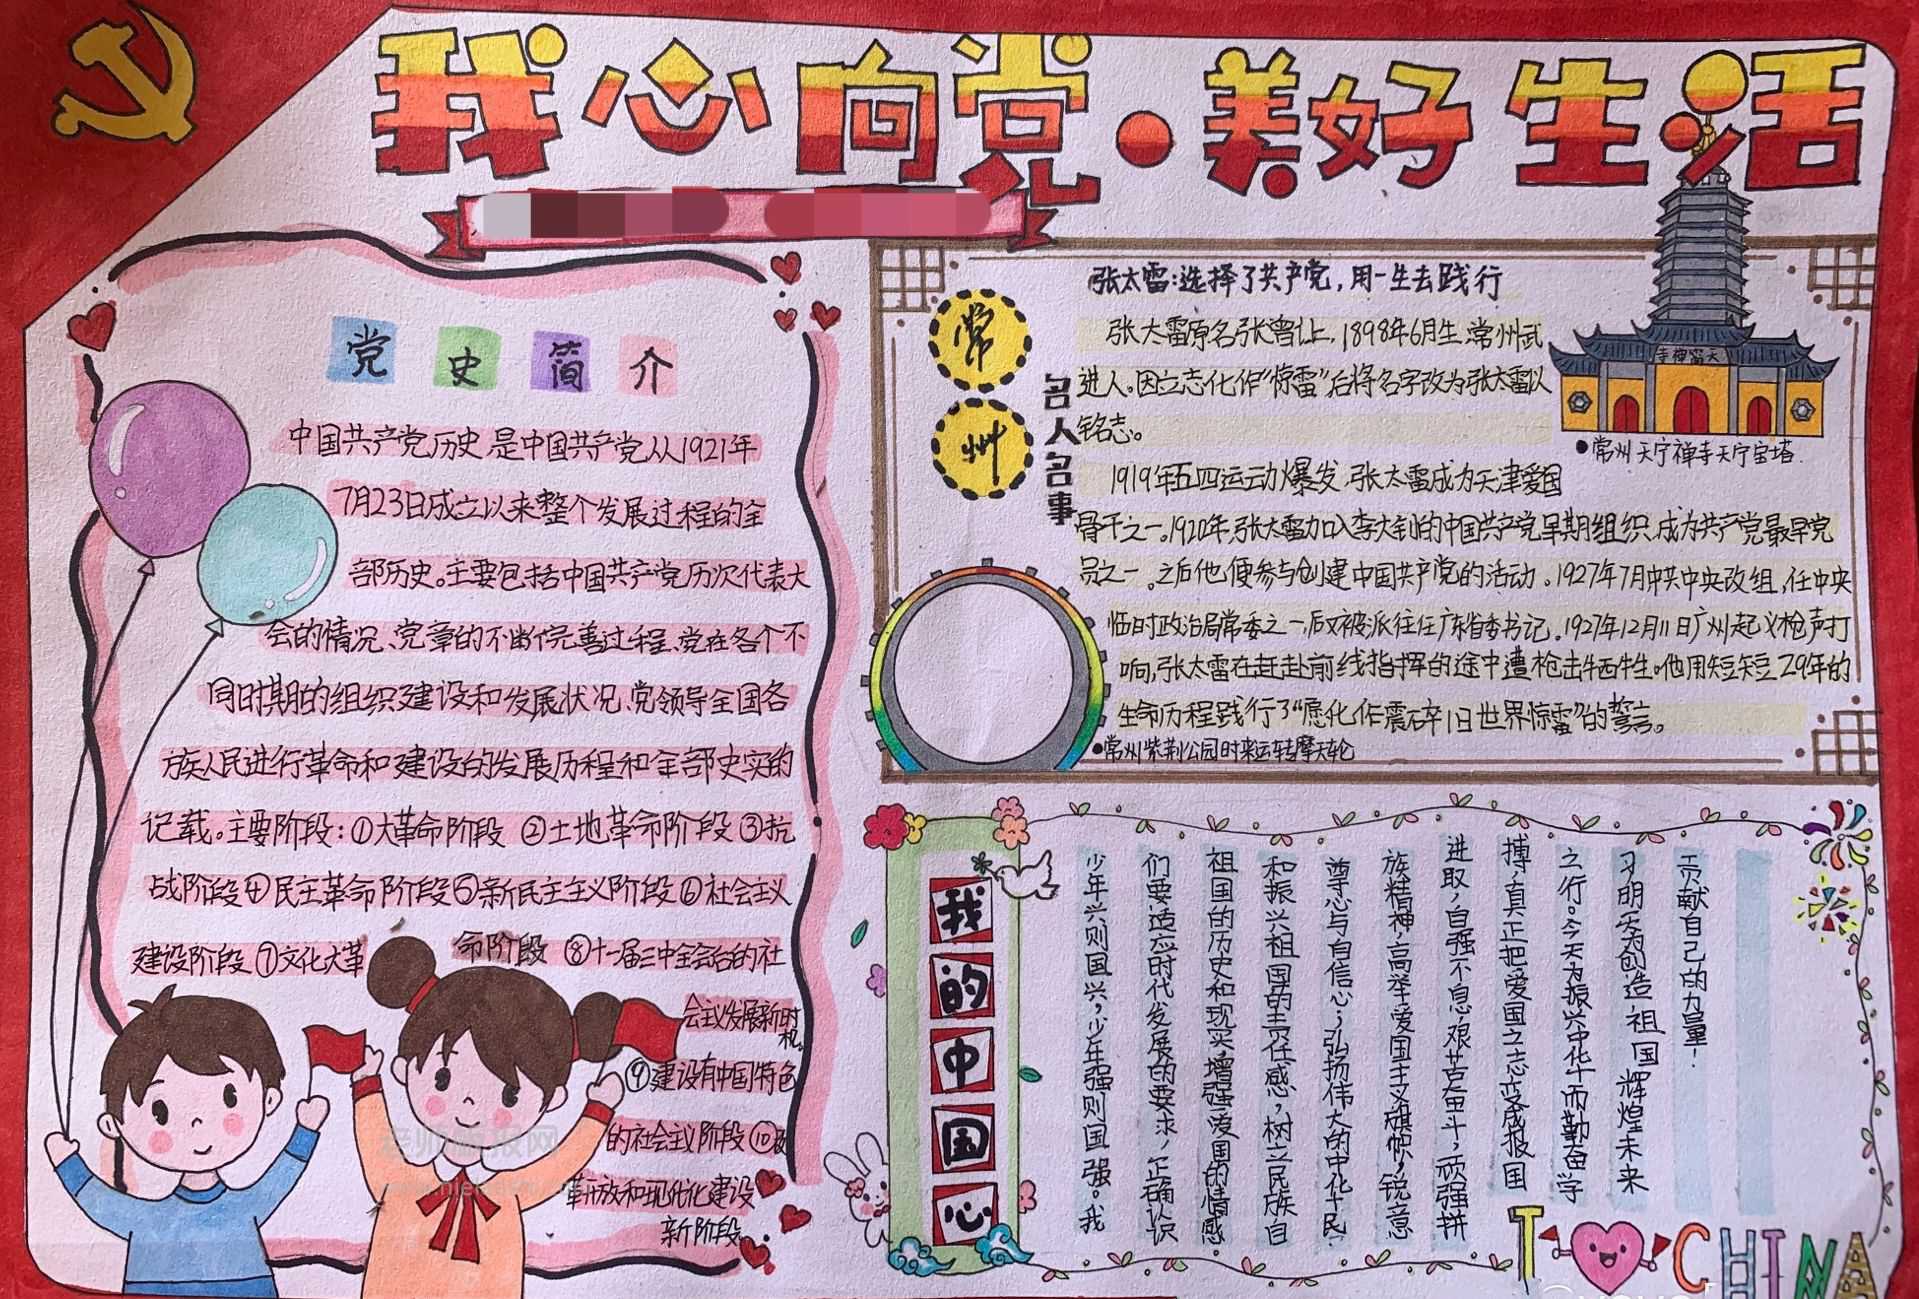 我心向党·美好生活
党史简介
中国共产党历史是中国共产党从1921年
7月23日成立以来整个发展过程的全
部历史。主要包括中国共产党历次代表大
会的情况、党章的不断完善过程、党在各个不
同时期的组织建设和发展状况、党领导全国各
族人民进行革命和建设的发展历程和全部史实的
记载。主要阶段:①大革命阶段 ②土地革命阶段 ③抗
战阶段④民主革命阶段⑤新民主主义阶段⑥社会主义
建设阶段⑦文化大革命阶段 ⑧十一届三中全会后的社
会主义发展新时
机。
⑨建设有中国特色
的社会主义阶段⑩改
革开放和现代化建设
新阶段。
常州
名人名事
张太雷:选择了共产党,用一生去践行
张太雷原名张曾让,1898年6月生,常州武
进人。因立志化作“惊雷”后将名字改为张太雷以
铭志。
1919年五四运动爆发,张太雷成为天津爱国
骨干之一。1920年,张太雷加入李大钊的中国共产党早期组织,成为共产党最早党
员之一。之后他便参与创建中国共产党的活动。1927年7月中共中央改组,任中央
临时政治局常委之一,后又被派往任广东省委书记。1927年12月11日广州起义枪声打
响,张太雷在赶赴前线指挥的途中遭枪击牺牲。他用短短29年的
生命历程践行了“愿化作震碎旧世界惊雷”的誓言。
天宁禅寺
●常州天宁禅寺天宁宝塔.
●常州紫荆公园时来运转摩天轮
我的中国心
少年兴则国兴,少年强则国强。我
们要适应时代发展的要求,正确认识
祖国的历史和现实,增强爱国的情感
和振兴祖国的责任感,树立民族自
尊心与自信心;弘扬伟大的中华民
族精神,高举爱国主义旗帜,锐意
进取,自强不息,艰苦奋斗,顽强拼
搏,真正把爱国之志变成报国
之行。今天为振兴中华而勤奋学
习,明天为创造祖国辉煌未来
贡献自己的力量!
I CHINA